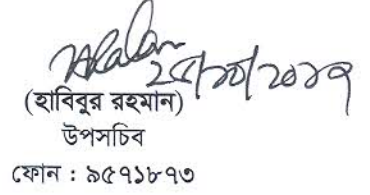 ২৫/১০/২০১৭
(হাবিবুর রহমান)
উপসচিব
ফোন : ৯৫৭১৮৭৩